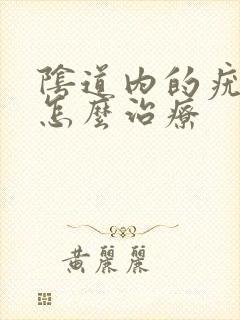 陰道內的
怎麼治療
黃麗麗